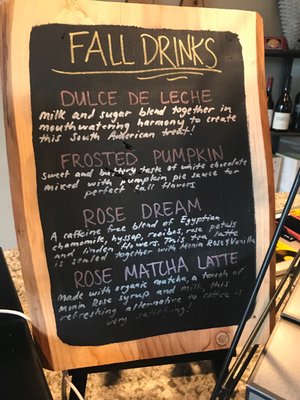 FALL DRINKS
DULCE DE LECHE
Milk and sugar blend together in
mouthwatering harmony to create
this South American treat!
FROSTED PUMPKIN
Sweet and buttery taste of white chocolate
mixed with pumpkin pie sauce for
perfect fall flavors
ROSE DREAM
A caffeine free blend of Egyptian
chamomile, hyssop, rooibos, rose petals
and linden flowers. This tea latte
is sealed together with Monin Rose & Vanilla
ROSE MATCHA LATTE
Made with organic matcha, a touch of
Monin Rose syrup and milk, this
refreshing alternative to coffee is
very satisfying!